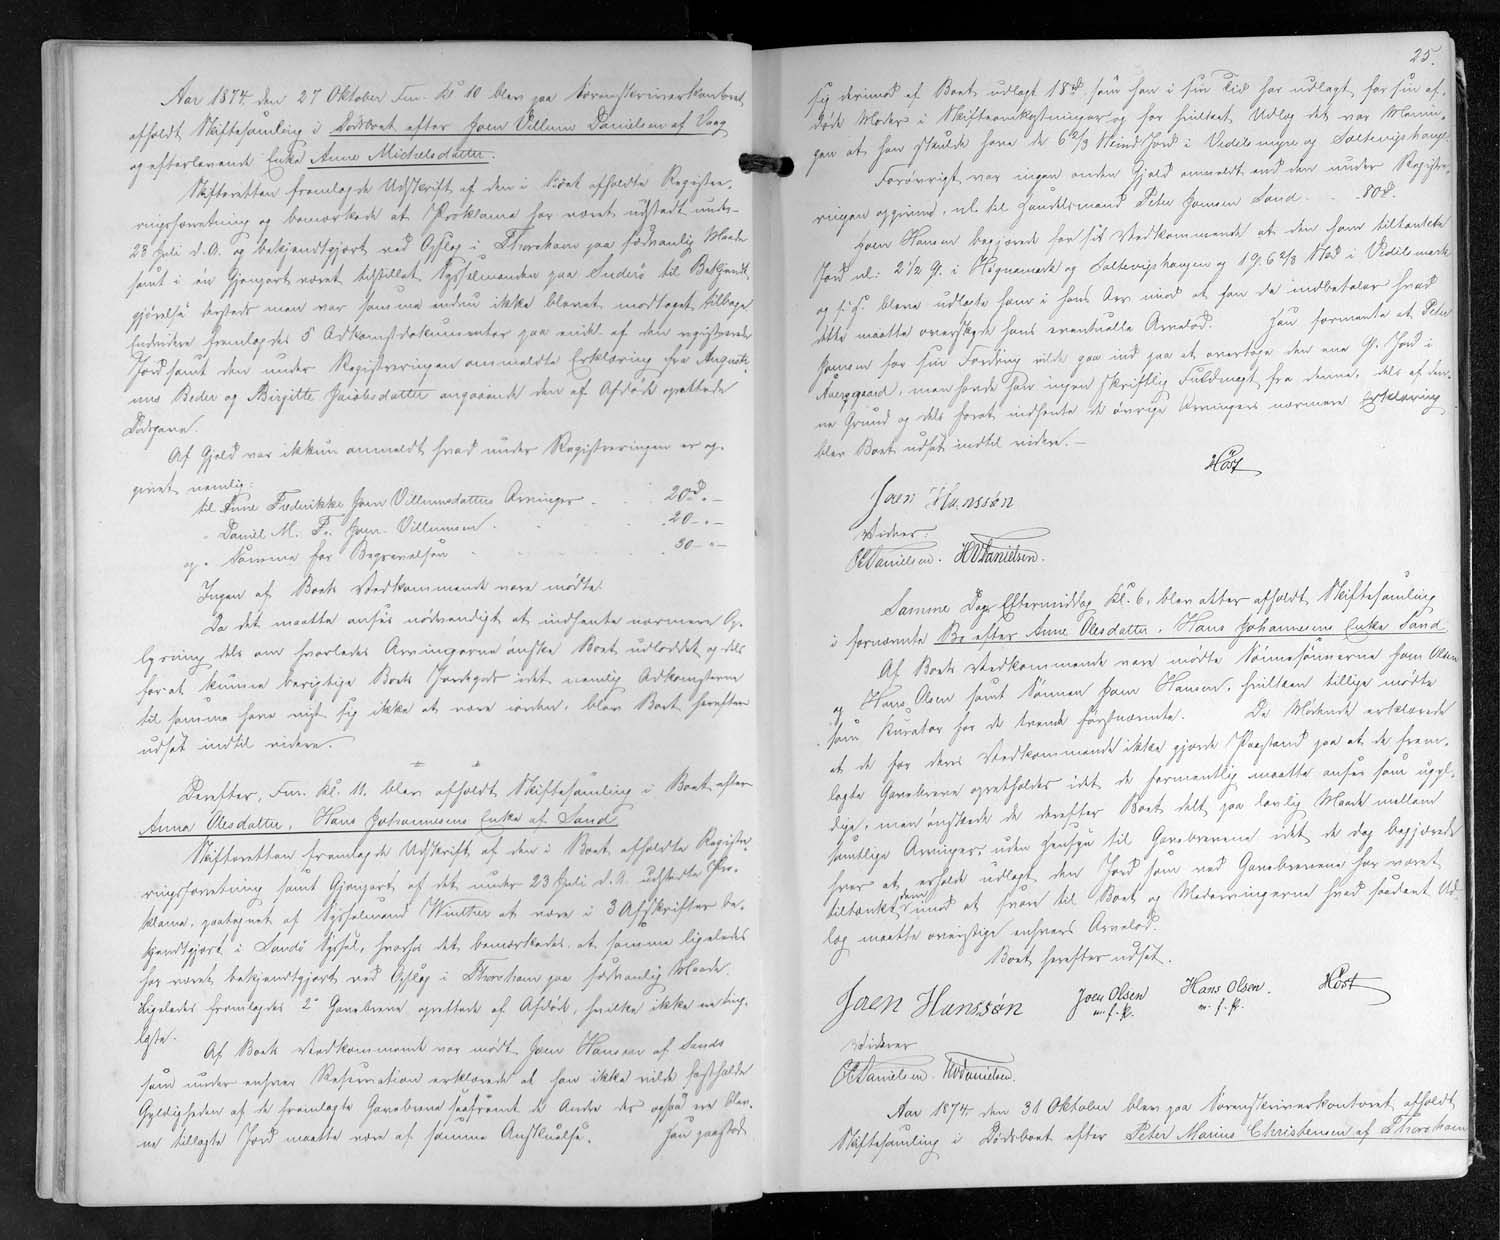 Aar 1874 den 27 Oktober Fm. Kl 10 blev paa Sorenskriverkontoret
afholdt Skiftesamling i Dødsboet efter Joen Villum Danielsen af Vaag
og efterlevende Enke Anne Michelsdatter.
Skifteretten fremlagde Udskrift af den i Boet afholdte Registre-
ringsforretning og bemærkede at Proklama har været udstedt under
23 Juli d.A. og bekjendtgjort ved Opslag i Thorshavn paa sædvanlig Maade
samt i én Gjenpart været tilstillet Sysselmanden paa Suderø til Bekjendt-
gjørelse dersteds men var samme endnu ikke blevet modtaget tilbage.
Endvidere fremlagdes 5 Adkomstdokumenter paa enkelt af den registrerede
Jord samt den under Registreringen ommeldte Erklæring fra Augusti-
nus Beder og Birgitte Jacobsdatter angaaende den af Afdøde oprettede
Dødsgave.
Af Gjeld var ikkun anmeldt hvad under Registreringen er op-
givet nemlig:
til Anne Fredrikke Joen Villumsdatters Arvinger . . 20 d. " –
" Daniel M. F. Joen Villumsen . . 20 – " –
og " Samme for Begravelsen . . 30 – " –
Ingen af Boets Vedkommende vare mødte.
Da det maatte anses nødvendigt at indhente nærmere Op-
lysning dels om hvorledes Arvingerne ønske Boet udloddet og dels
for at kunne berigtige Boets Jordegods idet nemlig Adkomsterne
til samme have vist sig ikke at være i orden, blev Boet herefter
udsat indtil videre.
Derefter, Fm. Kl. 11. blev afholdt Skiftesamling i Boet efter
Anna Olesdatter, Hans Johannesens Enke af Sand
Skifteretten fremlagde Udskrift af den i Boet afholdte Registre-
ringsforretning samt Gjenpart af det under 23 Juli d.A. udstedte Pro-
klama, paategnet af Sysselmand Winther at være i 3 Afskrifter be-
kjendtgjort i Sandø Syssel, hvorhos det bemærkedes at samme ligeledes
har været bekjendtgjort ved Opslag i Thorshavn paa sædvanlig Maade.
Ligeledes fremlagdes 2 Gavebreve oprettede af Afdøde, hvilke ikke ere ting-
læste.
Af Boets Vedkommende var mødt Joen Hansen af Sand
som under enhver Reservation erklærede at han ikke vilde fastholde
Gyldigheden af de fremlagte Gavebreve saafremt de Andre der ogsaa ere blev-
ne tillagte Jord maatte være af samme Anskuelse. Han paastod
25.
sig derimod af Boet udlagt 18 d. som han i sin Tid har udlagt for sin af-
døde Moder i Skifteomkostninger og for hvilket Udlæg det var Menin-
gen at han skulde have de 6 2/3 Skind Jord i Vedelsmyre og Saltevigshaugen.
Forøvrigt var ingen anden Gjeld anmeldt end den under Registre-
ringen opgivne, nl. til Handelsmand Peter Jansen Sand . . 80 d.
Joen Hansen begjærede for sit Vedkommende at den ham tiltænkte
Jord nl: 2 1/2 G. i Høgnemark og Saltevigshaugen og 1 G. 6 2/3 Skd i Vedelsmark
og s: G. bleve udlagte ham i hans Arv mod at han da indbetaler hvad
dette maatte overskyde hans eventuelle Arvelod. Han formente at Peter
Jansen for sin Fordring vilde gaa ind paa at overtage den ene G. Jord i
men havde han ingen skriftlig Fuldmagt fra denne, dels af den-
ne Grund og dels forat indhente de øvrige Arvingers nærmere Erklæring
blev Boet udsat indtil videre. –
Høst
Joen Hanssøn
Vidner:
OCDanielsen. HVDanielsen.
Samme Dag Eftermiddag Kl. 6, blev atter afholdt Skiftesamling
i fornævnte Bo efter Anne Olesdatter, Hans Johannesens Enke Sand
Af Boets Vedkommende vare mødte Sønnesønnerne Joen Olsen
og Hans Olsen samt Sønnen Joen Hansen, hvilken tillige mødte
som Kurator for de tvende førstnævnte. De Mødende erklærede
at de for deres Vedkommende ikke gjorde Paastand paa at de frem-
lagte Gavebreve opretholdes idet de formentlig maatte anses som ugyl-
dige, men ønskede de derefter Boet delt paa lovlig Maade mellem
samtlige Arvinger uden Hensyn til Gavebrevene idet de dog begjærede
hver at erholde udlagt den Jord som ved Gavebrevene har været
tiltænkt dem imod at svare til Boet og Medarvingerne hvad saadant Ud-
læg maatte overstige enhvers Arvelod.
Boet herefter udsat.
Joen Hanssøn Joen Olsen Hans Olsen. Høst
m. f. P. m. f. P.
Vidner
OCDanielsen. HVDanielsen.
Aar 1874 den 31 Oktober blev paa Sorenskriverkontoret afholdt
Skiftesamling i Dødsboet efter Peter Marius Christensen af Thorshavn